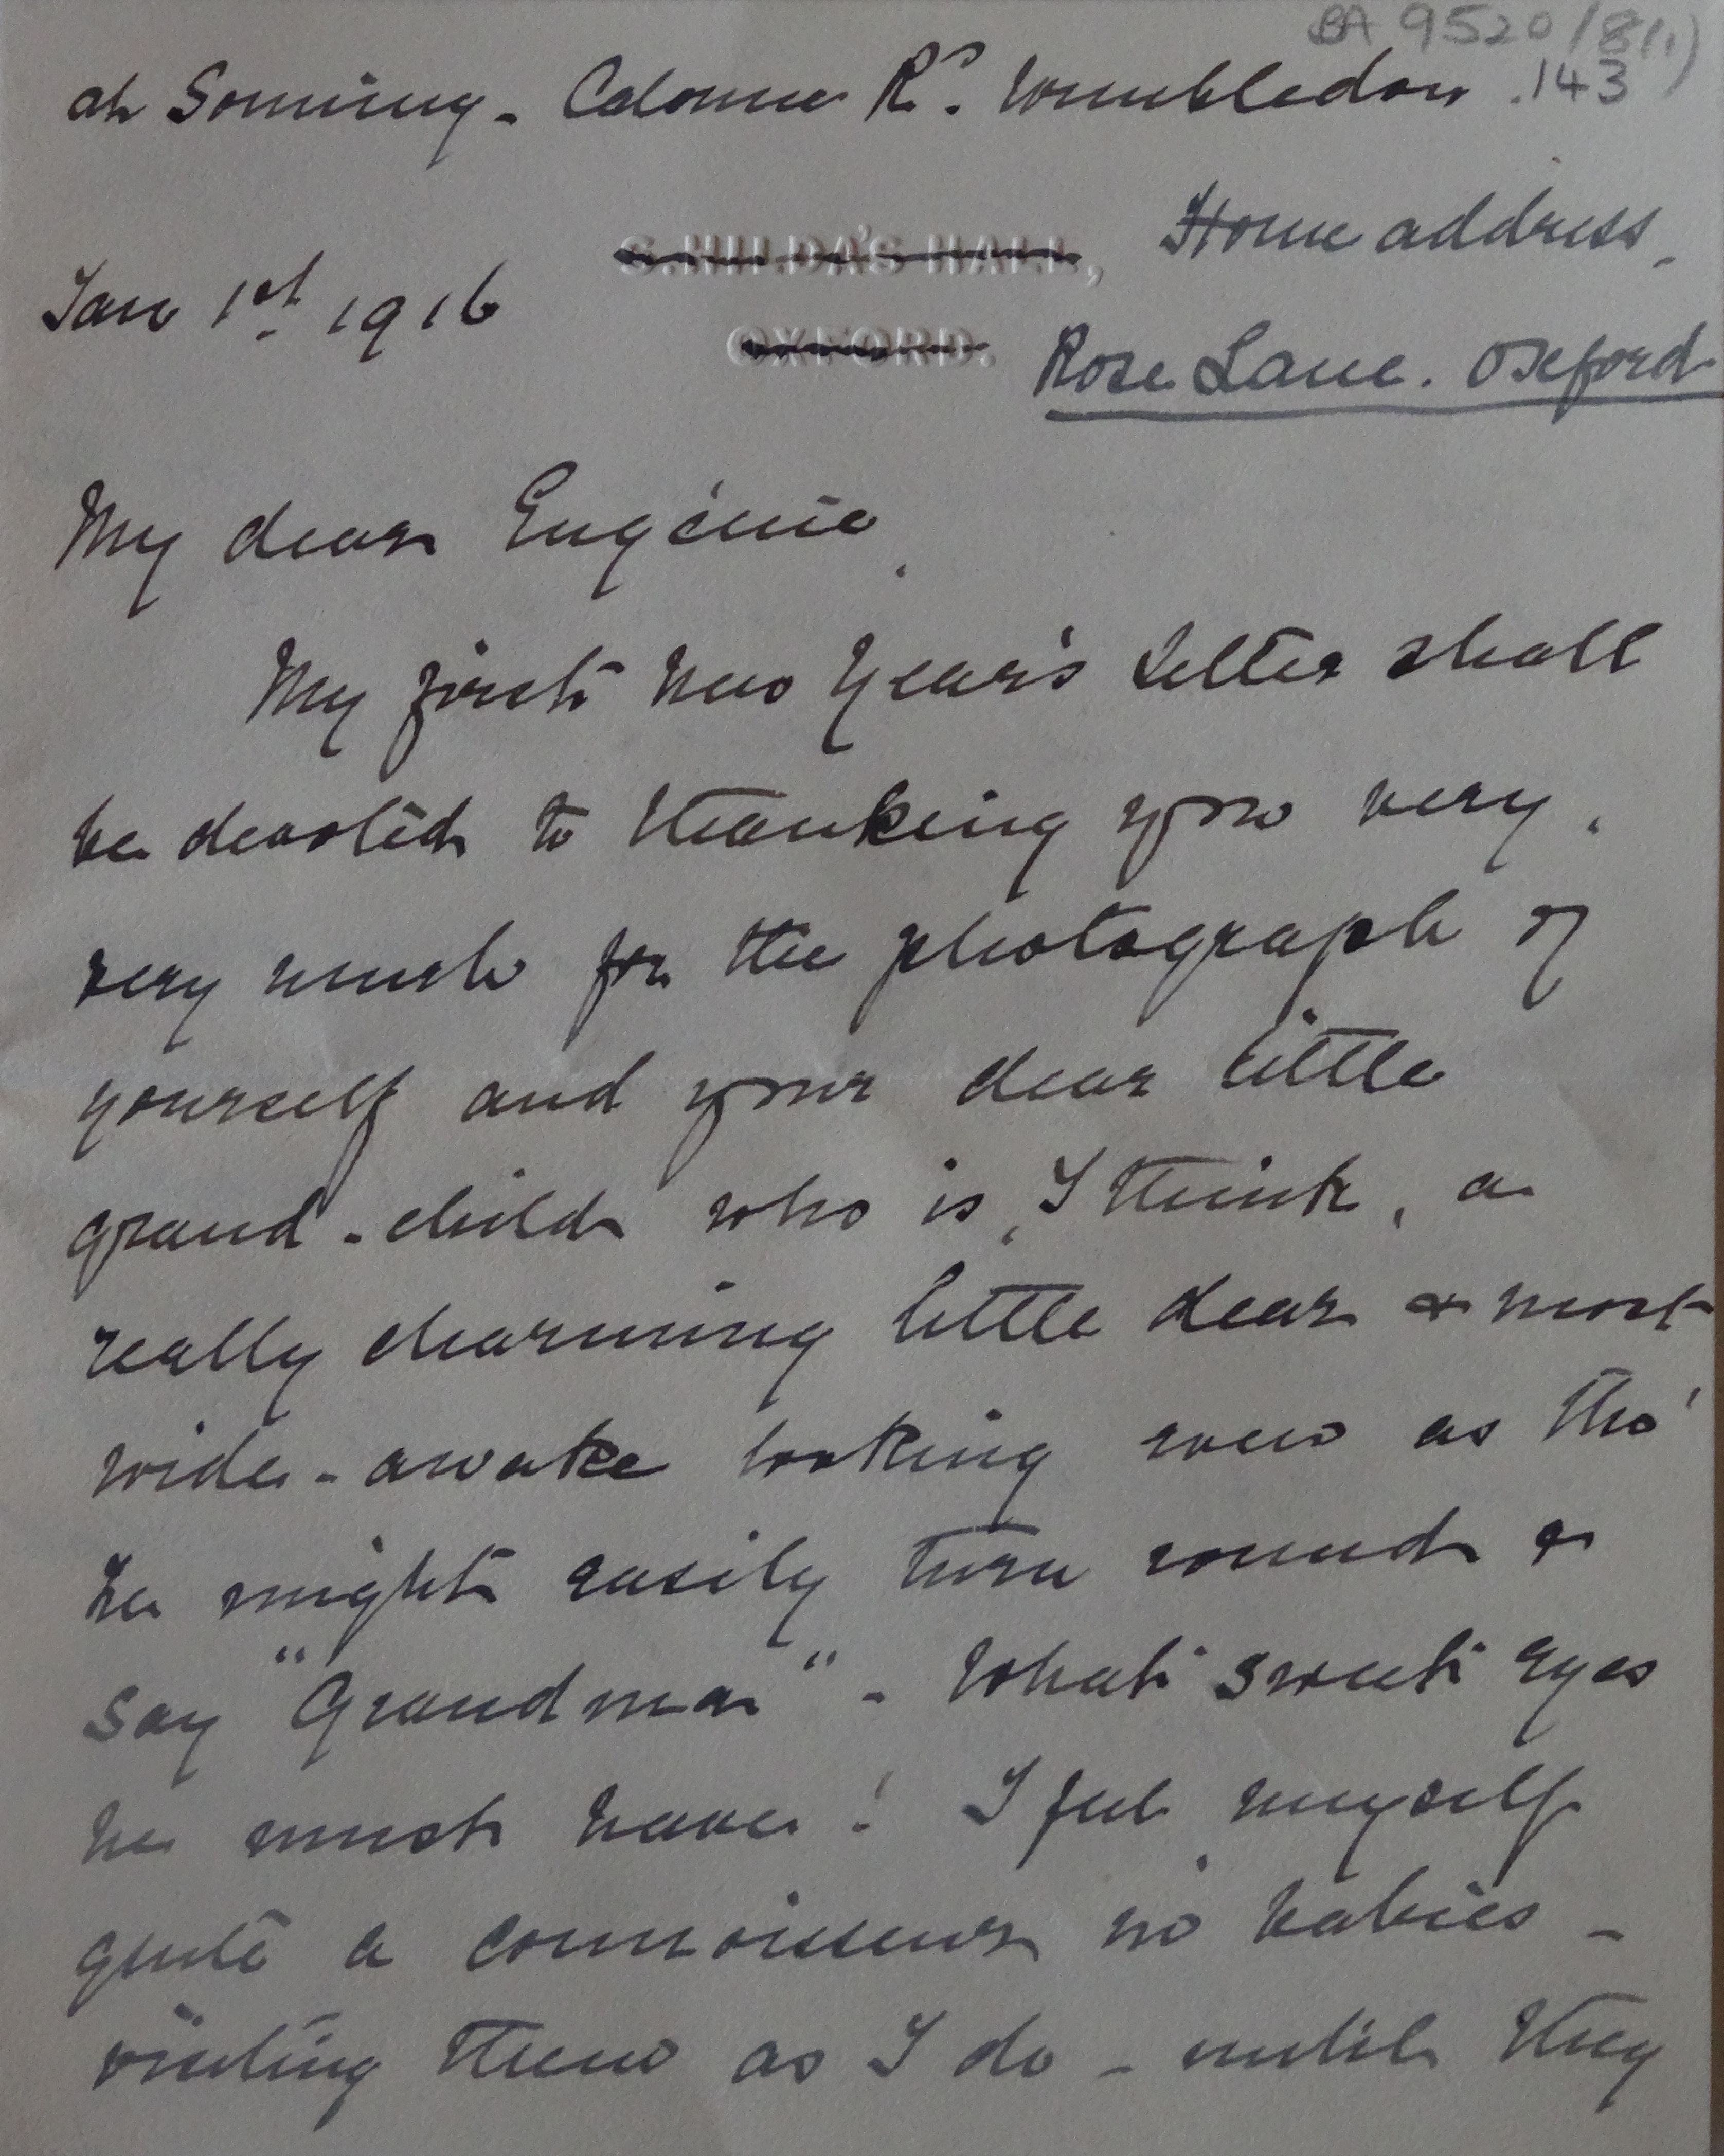 BA 9520/8(1)
at Sonning - Calonne Rd. Wimbledon . 143
S. HILDA'S HALL,
OXFORD.
Home address.
Jan 1st. 1916
Rose Lane. Oxford
My dear Eugénie,
My first New Year's letter shall
be devoted to thanking you very,
very much for the photograph of
yourself and your dear little
grand-child who is, I think, a
really charming little dear & most
wide-awake looking now as tho'
he might easily turn round &
say "Grandma" - What sweet eyes
he must have! I feel myself
quite a connoisseur in babies -
visiting them as I do - until they